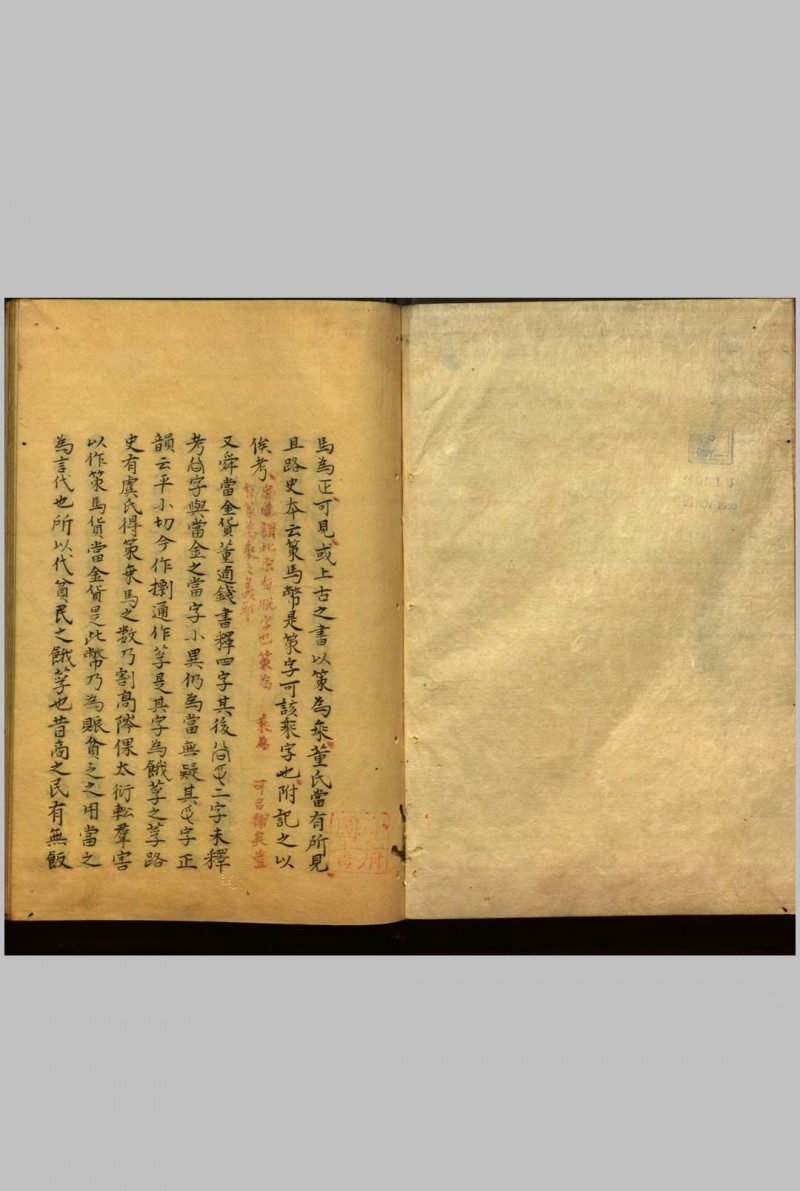 馬為正可見或上古之書以策為乘董氏當有所見
且路史本云策馬幣是策字可該乘字也附記之以
俟考
策為 乘為 可以
又舜當金貨董逌錢書釋四字其後二字未釋
考字與當金之當字小異仍為當無疑其字正
韻云平小切今作摽通作莩是其字為餓莩之莩路
史有虞氏得策乘馬之数乃割高陴倮太衍転羣害
以作策馬貨當金貨是此幣乃為賑貧乏之用當之
為言代也所以代貧民之餓莩也昔商之民有無飯